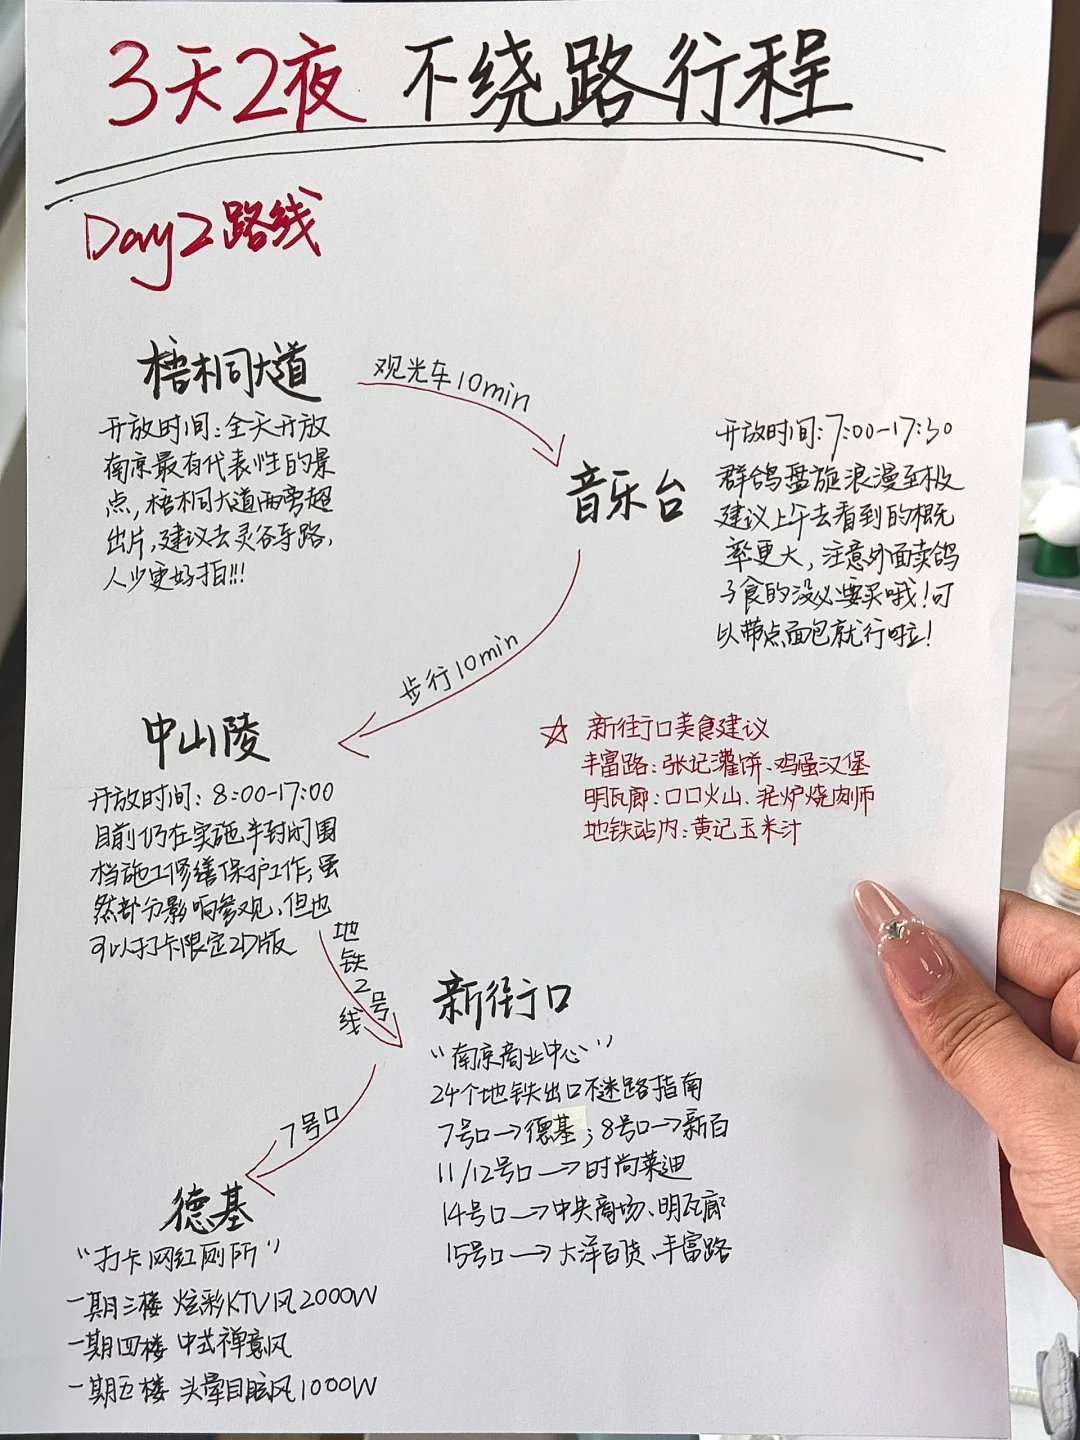 3天2夜 不绕路行程
Day2路线
梧桐大道
开放时间:全天开放
南京最有代表性的景
点,梧桐大道两旁超
出片,建议去灵谷寺路,
人少更好拍!!!
观光车10min
音乐台
开放时间:7:00-17:30
群鸽盘旋浪漫至极
建议上午去看到的概
率更大,注意外面卖鸽
子食的没必要买哦!可
以带点面包就行啦!
步行10min
中山陵
开放时间:8:00-17:00
目前仍在实施半封闭围
档施工修缮保护工作,虽
然部分影响参观,但也
可以打卡限定2D版
☆ 新街口美食建议
丰富路:张记灌饼、鸡蛋汉堡
明瓦廊:口口火山、泥炉烧肉师
地铁站内:黄记玉米汁
地铁2号线
新街口
"南京商业中心"
24个地铁出口不迷路指南
7号口→德基;8号口→新百
11/12号口→时尚莱迪
14号口→中央商场、明瓦廊
15号口→大洋百货、丰富路
7号口
德基
"打卡网红厕所"
一期三楼 炫彩KTV风2000W
一期四楼 中式禅意风
一期五楼 头晕目眩风1000W